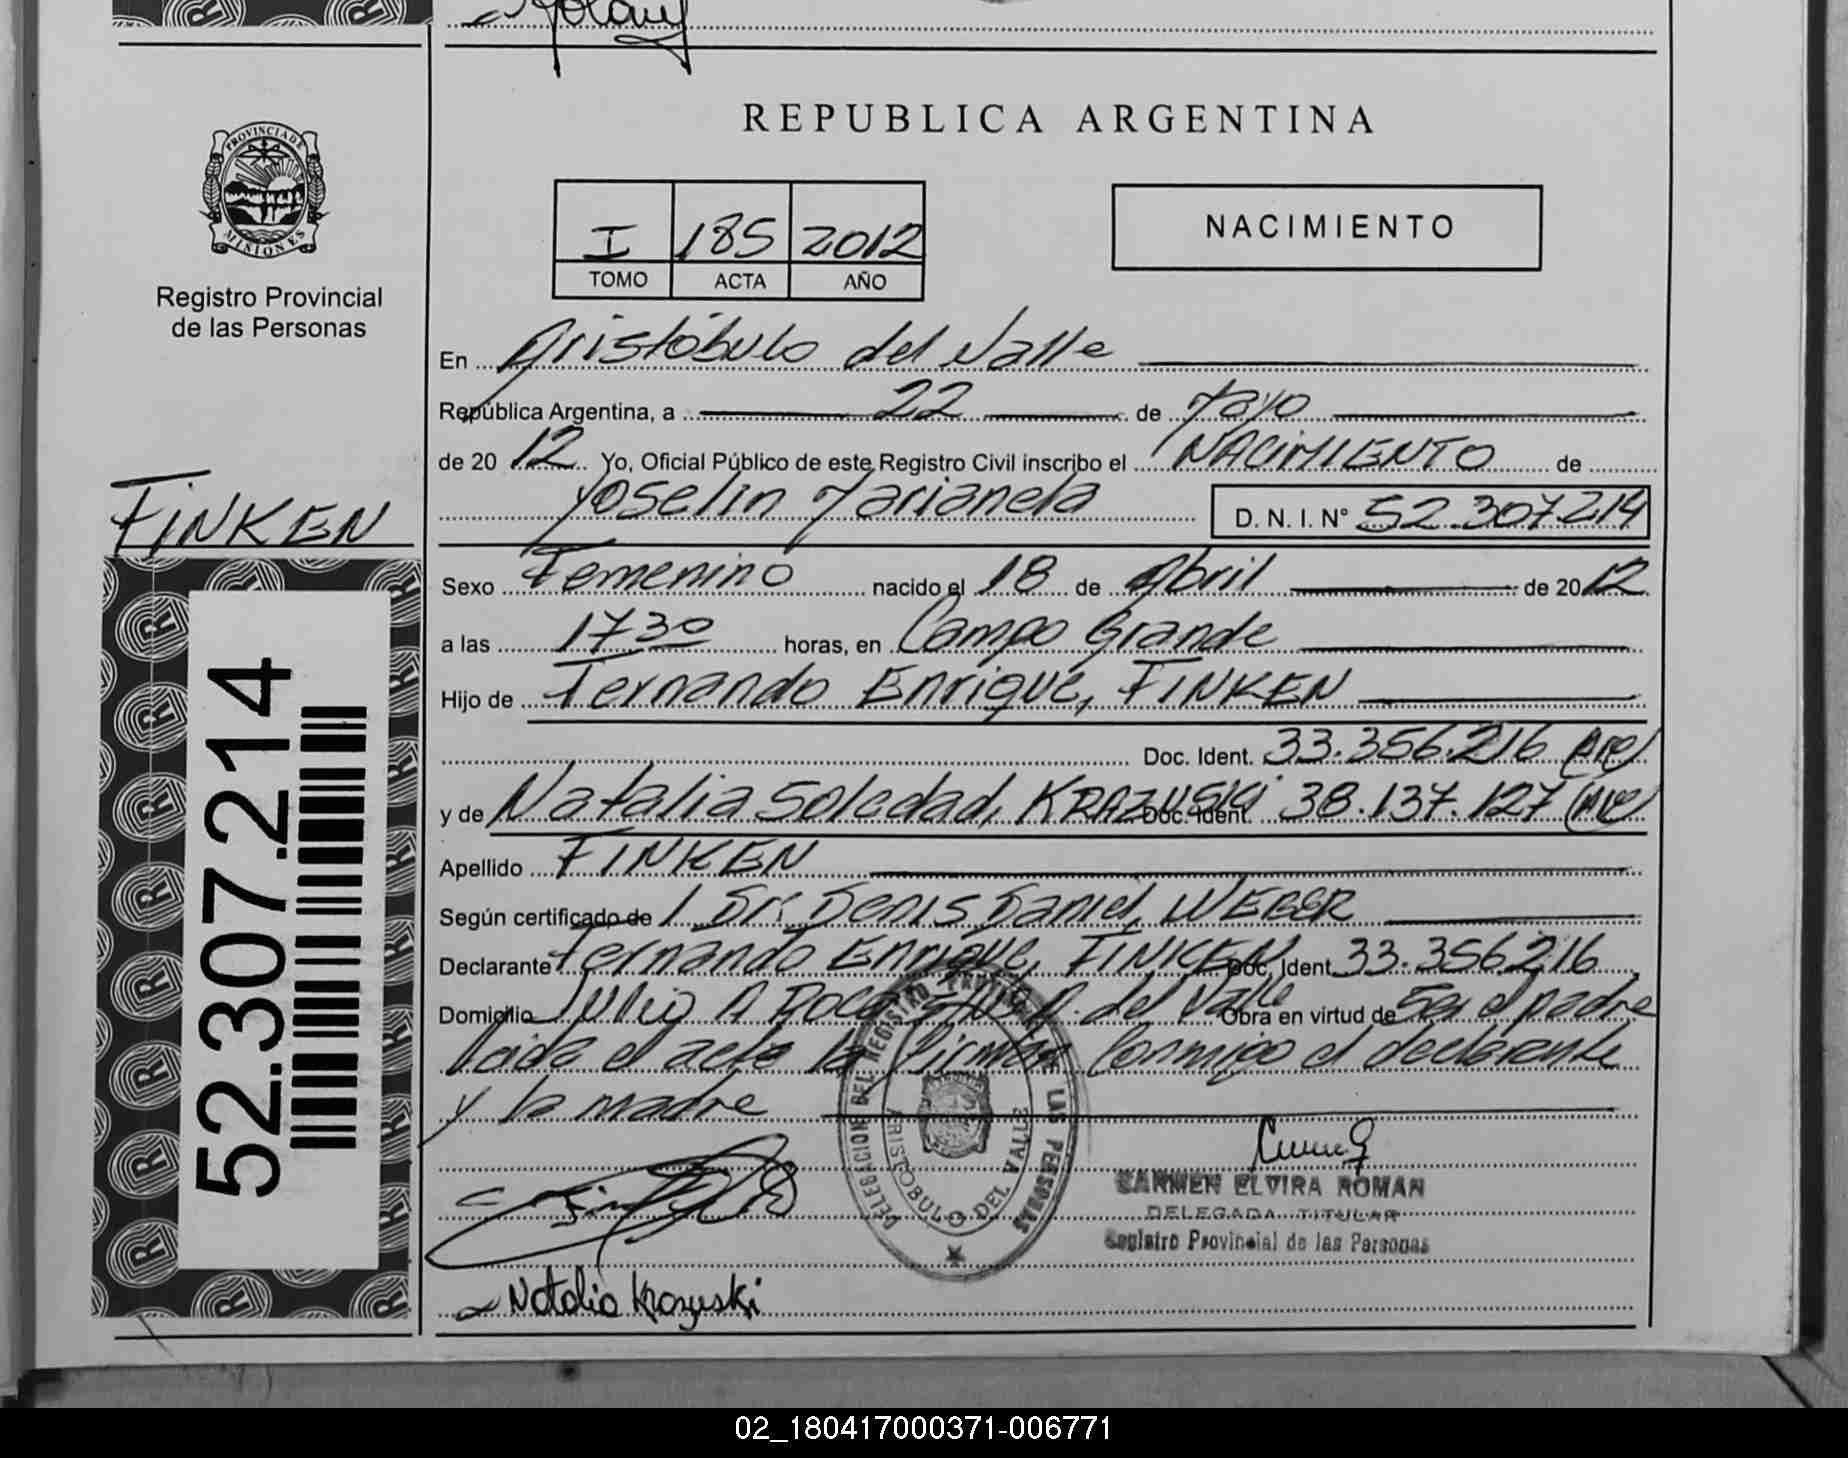 REPUBLICA ARGENTINA
PROVINCIA DE
MISIONES
Registro Provincial
de las Personas
I 185 2012
TOMO ACTA AÑO
NACIMIENTO
En Aristóbulo del Valle
República Argentina, a 22 de Mayo
de 20 12 Yo, Oficial Público de este Registro Civil inscribo el NACIMIENTO de
Yoselin Marianela D. N. I. N° 52.307.214
FINKEN
Sexo Femenino nacido el 18 de Abril de 20 12
a las 17 30 horas, en Campo Grande
Hijo de Fernando Enrique, FINKEN
Doc. Ident. 33.356.216 (Arg)
y de Natalia Soledad, KRAZUSKI Doc. Ident. 38.137.127 (Arg)
Apellido FINKEN
Según certificado de Dr. Denis Daniel, WEBER
Declarante Fernando Enrique, FINKEN Doc. Ident. 33.356.216
Domicilio Julio A Roca S/N° A. del Valle Obra en virtud de Ser el padre
Leida el acta la firman conmigo el declarante
y la madre
52.307.214
DELEGACION DEL REGISTRO PROVINCIAL DE LAS PERSONAS
ARISTOBULO DEL VALLE
CARMEN ELVIRA ROMAN
DELEGADA TITULAR
Registro Provincial de las Personas
Natalia Krazuski
02_180417000371-006771